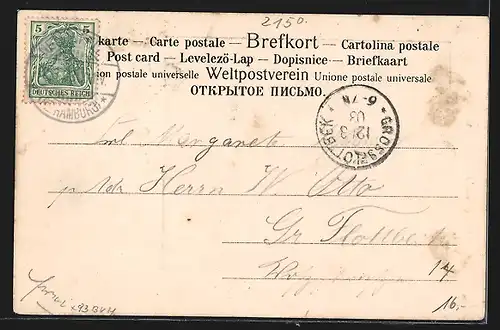 2150.
5 5
DEUTSCHES REICH
HAMBURG
karte — Carte postale — Brefkort — Cartolina postale
Post card — Levelező-Lap — Dopisnice — Briefkaart
nion postale universelle Weltpostverein Unione postale universale
ОТКРЫТОЕ ПИСЬМО.
GROSS FLOTTBEK
12/3
03
6-7N
Frl. Margareth
Herrn W. Otto
Gr. Flottbek
14
16.-